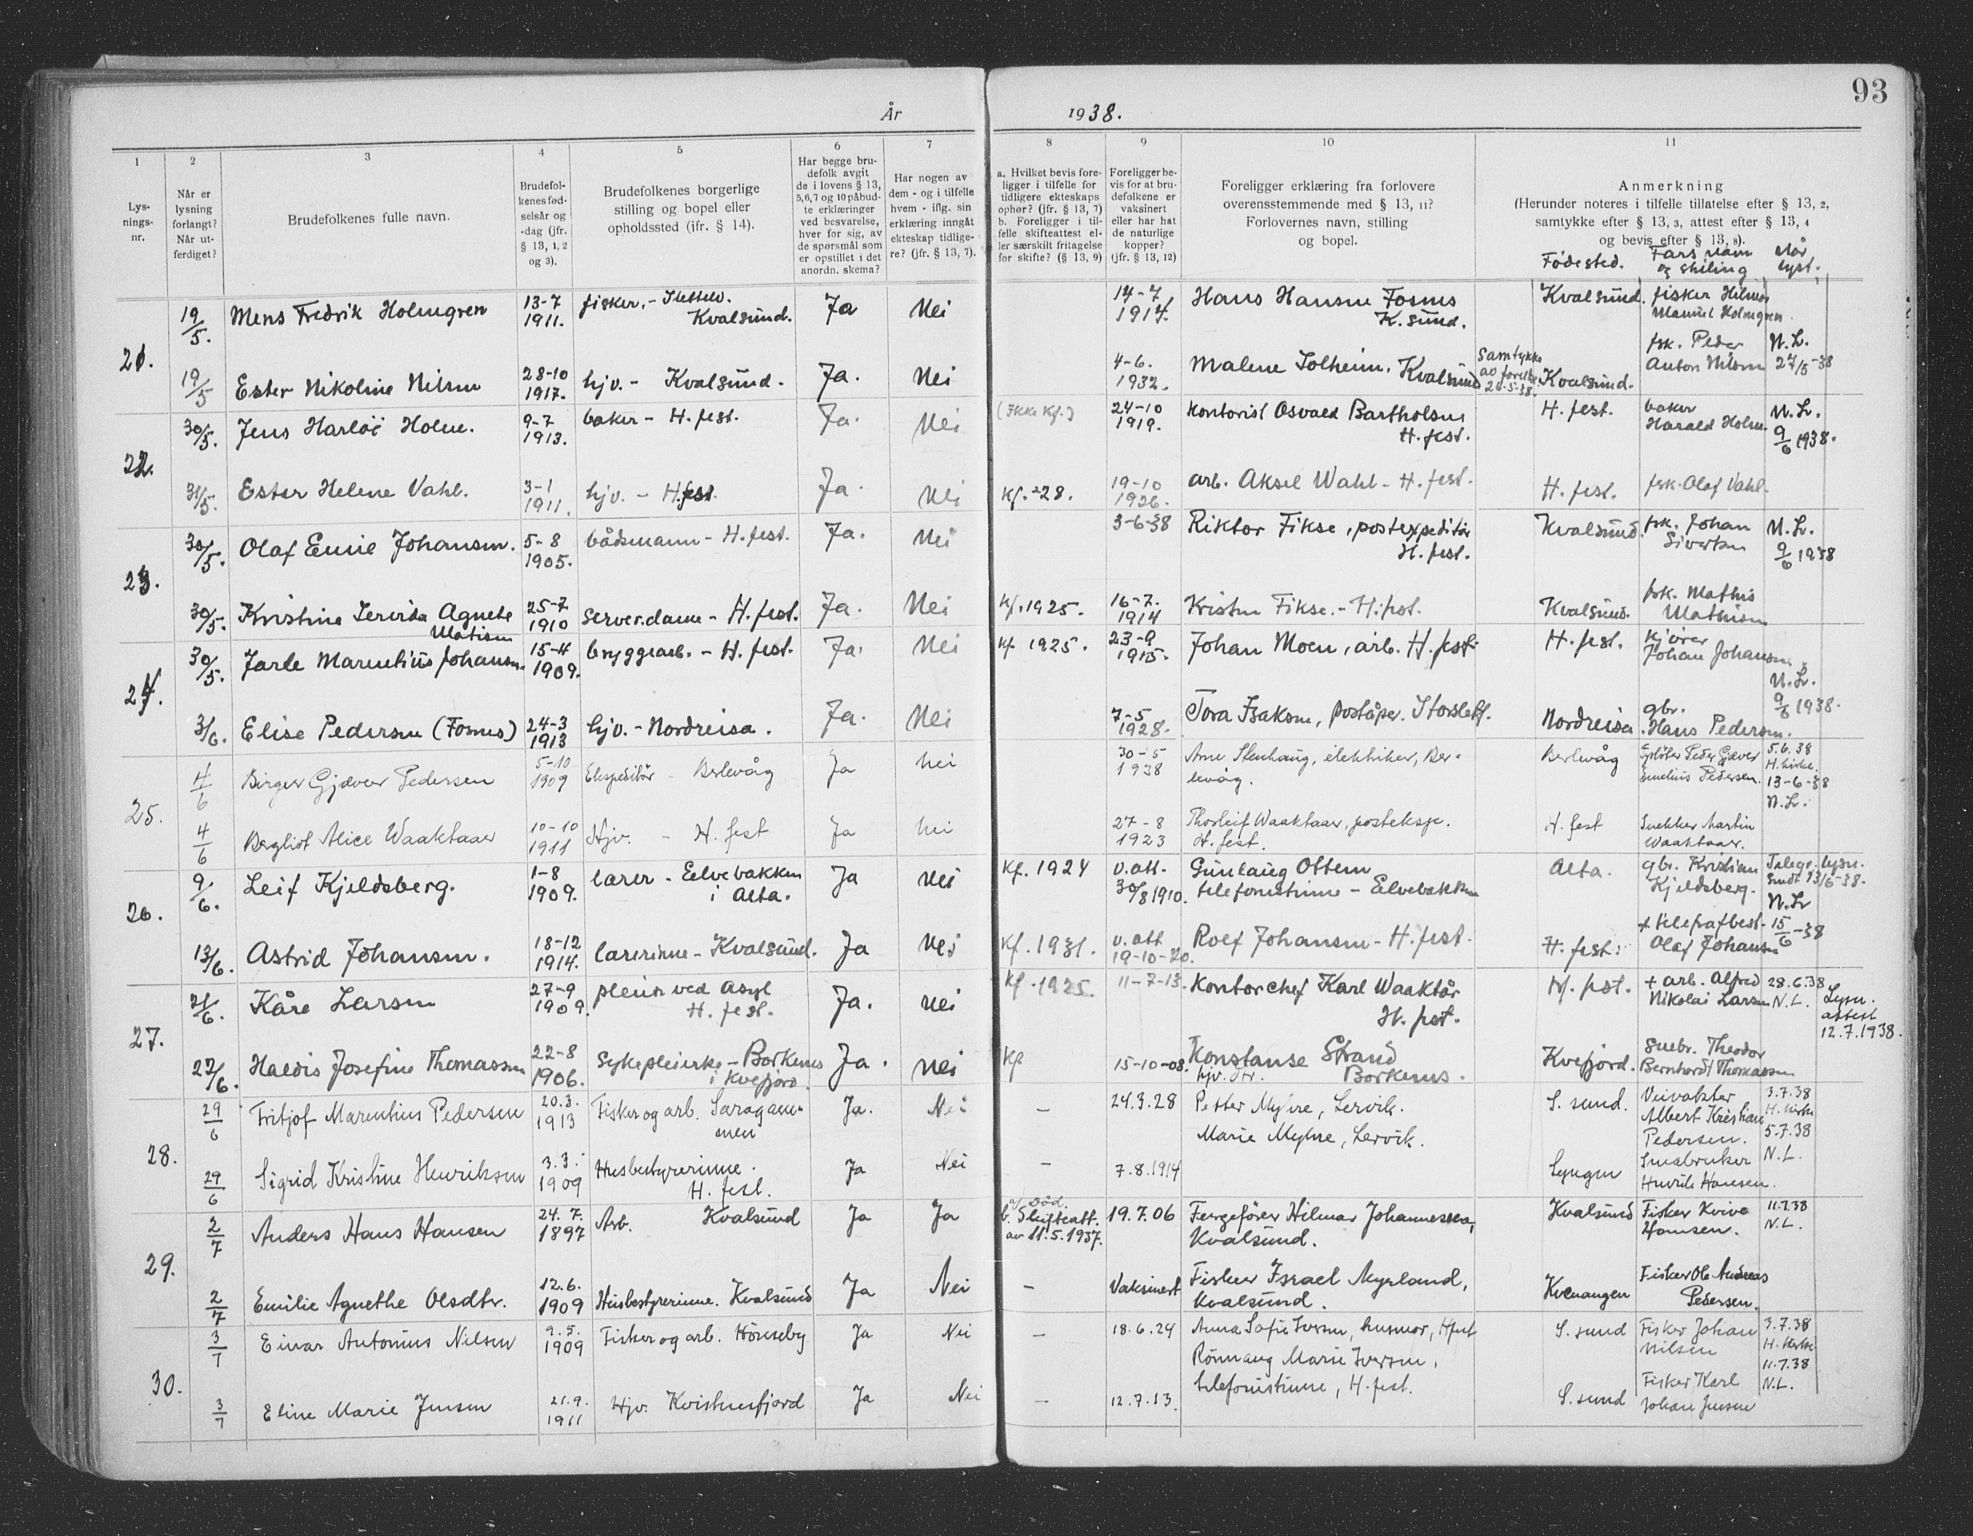 93
År 1938.
1 2 3 4 5 6 7 8 9 10 11
Lysnings-nr.
Når er lysning forlangt? Når utferdiget?
Brudefolkenes fulle navn.
Brudefolkenes fødselsår og -dag (jfr. § 13, 1, 2 og 3).
Brudefolkenes borgerlige stilling og bopel eller opholdssted (jfr. § 14).
Har begge brudefolk avgit de i lovens § 13, 5,6,7 og 10 påbudte erklæringer ved besvarelse, hver for sig, av de spørsmål som er opstillet i det anordn. skema?
Har nogen av dem - og i tilfelle hvem - iflg. sin erklæring inngått ekteskap tidligere? (jfr. § 13, 7).
a. Hvilket bevis foreligger i tilfelle for tidligere ekteskaps ophør? (jfr. § 13, 7) b. Foreligger i tilfelle skifteattest eller særskilt fritagelse for skifte? (§ 13, 9)
Foreligger bevis for at brudefolkene er vaksinert eller har hat de naturlige kopper? (jfr. § 13, 12)
Foreligger erklæring fra forlovere overensstemmende med § 13, 11? Forlovernes navn, stilling og bopel.
Anmerkning (Herunder noteres i tilfelle tillatelse efter § 13, 2, samtykke efter § 13, 3, attest efter § 13, 4 og bevis efter § 13, 8).
Fødested. Fars navn og stilling Når lyst.
21. 19/5. Mens Fredrik Holmgren 13-7 1911. fisker. - Kvalsund. Ja Nei 14-7 1914. Hans Hansen Fosnes K.sund. Kvalsund. fisker Hilmar Manuel Holmgren
19/5 Ester Nikoline Nilsen 28-10 1917. hjv. - Kvalsund. Ja. Nei 4-6. 1932. Malene Solheim. Kvalsund Samtykke av foreldre 20-5-38. Kvalsund. fsk. Peder Anton Nilsen N.L. 27/5-38
22. 30/5. Jens Harloi Holm. 9-7 1913. baker - H.fest. Ja. Nei (Ikke Kf.) 24-10 1919. Kontorist Osvald Bartholsen H.fest. H. fest. baker Harald Holm. N.L. 9/6 1938.
31/5. Ester Helene Vahl. 3-1 1911. hjv. - H.fest. Ja. Nei Kf. -28. 19-10 1926. arb. Aksel Wahl - H. fest. H. fest. fsk. Olaf Vahl.
23. 30/5. Olaf Emil Johansen. 5-8 1905. bådsmann - H.fest. Ja. Nei 3-6-38 Riktor Fikse, postexpeditør H. fest. Kvalsund. fsk. Johan Sivertsen N.L. 9/6 1938
30/5. Kristine Agnete Matisen 25-7 1910 server.dame - H.fest. Ja. Nei Kf. 1925. 16-7. 1914 Kristen Fikse. - H.fest. Kvalsund. fsk. Mathis Mathisen
24. 30/5. Jarle Marentius Johansen 15-4 1909. bryggearb. - H. fest. Ja. Nei Kf 1925. 23-9 1915. Johan Moen, arb. H. fest. H. fest. kjører Johan Johansen N.L. 9/6 1938.
3/6. Elise Pedersen (Fosnes) 24-3 1913 hjv. - Nordreisa. Ja. Nei 7-5 1928. Tora Isaksen, poståper. Storslett. Nordreisa gbr. Hans Pedersen.
25. 4/6 Birger Gjæver Pedersen 5-10 1909 Ekspeditør - Berlevåg Ja Nei 30-5 1938 Arne Stenhaug, elektriker, Berlevåg. Berlevåg Peder Gjæver Emelius Pedersen. 5.6.38 H.kirke. 13-6-38 N.L.
4/6 Bergliot Alice Waaktaaer 10-10 1911 Hjv. - H. fest Ja Nei 27-8 1923 Thorleif Waaktaaer, posteksp. H. fest. H. fest Snekker Martin Waaktaaer.
26. 9/6. Leif Kjeldsberg. 1-8 1909. lærer - Elvebakken i Alta. Ja Nei Kf. 1924 v.att. 30/8 1910. Gunlaug Ottem telefonistinne - Elvebakken Alta. gbr. Kristian Kjeldsberg. Telegr. lysn. sendt 13/6-38. N.L.
13/6. Astrid Johansen. 18-12 1914. lærerinne - Kvalsund. Ja Nei Kf. 1931. v.att 19-10-20. Rolf Johansen - H.fest. H. fest. + telegrafbest. Olaf Johansen 15/6-38
27. 21/6. Kåre Larsen 27-9 1909. pleier ved Asyl H. fest. Ja. Nei Kf. 1925. 11-7-13. Kontorchef Karl Waaktår H. fest. H. fest. + arb. Alfred Nikolai Larsen 28.6.38 N.L. Lysn. attest 12.7.1938.
22/6. Haldis Josefine Thomassen 22-8 1906. Sykepleierske - Borkenes i Kvefjord. Ja. Nei Kf 15-10-08. Konstanse Strand hjv. Borkenes. Kvefjord. Theodor Bernhardt Thomassen
28. 29/6 Fritjof Marentius Pedersen 20.3. 1913 Fisker og arb. Saragammen Ja. Nei — 24.3.28 Petter Myhre, Lervik. Marie Myhre, Lervik. S. sund. Veivokter Albert Kristian Pedersen. 3.7.38 H. kirke 5.7.38 N.L.
29/6 Sigrid Kristine Henriksen 3.3. 1909 Husbestyrerinne. H. fest. Ja Nei — 7.8.1914 Lyngen Småbruker Henrik Hansen.
29. 2/7 Anders Hans Hansen 24.7. 1897 Arb. Kvalsund Ja Ja a/ Død. b. Skifteatt. av 11.5.1937. 19.7.06 Fergefører Hilmar Johannessen, Kvalsund. Kvalsund Fisker Hansen. 11.7.38 N.L.
2/7 Emilie Agnethe Olsdtr. 12.6. 1909 Husbestyrerinne. Kvalsund Ja Nei — Vaksinert Fisker Israel Myrland, Kvalsund. Kvenangen Fisker Ole Andreas Pedersen.
30. 3/7 Einar Antonius Nilsen 9.5. 1909 Fisker og arb. Hønseby Ja Nei — 18.6.24 Anna Sofie Iversen, husmor, H.fest Rønnaug Marie Iversen, telefonistinne, H. fest. S. sund Fisker Johan Nilsen 3.7.38 H. kirke 11.7.38 N.L.
3/7 Eline Marie Jensen 21.9. 1911 Hjv. Ja Nei — 12.7.13. S. sund Fisker Karl Johan Jensen